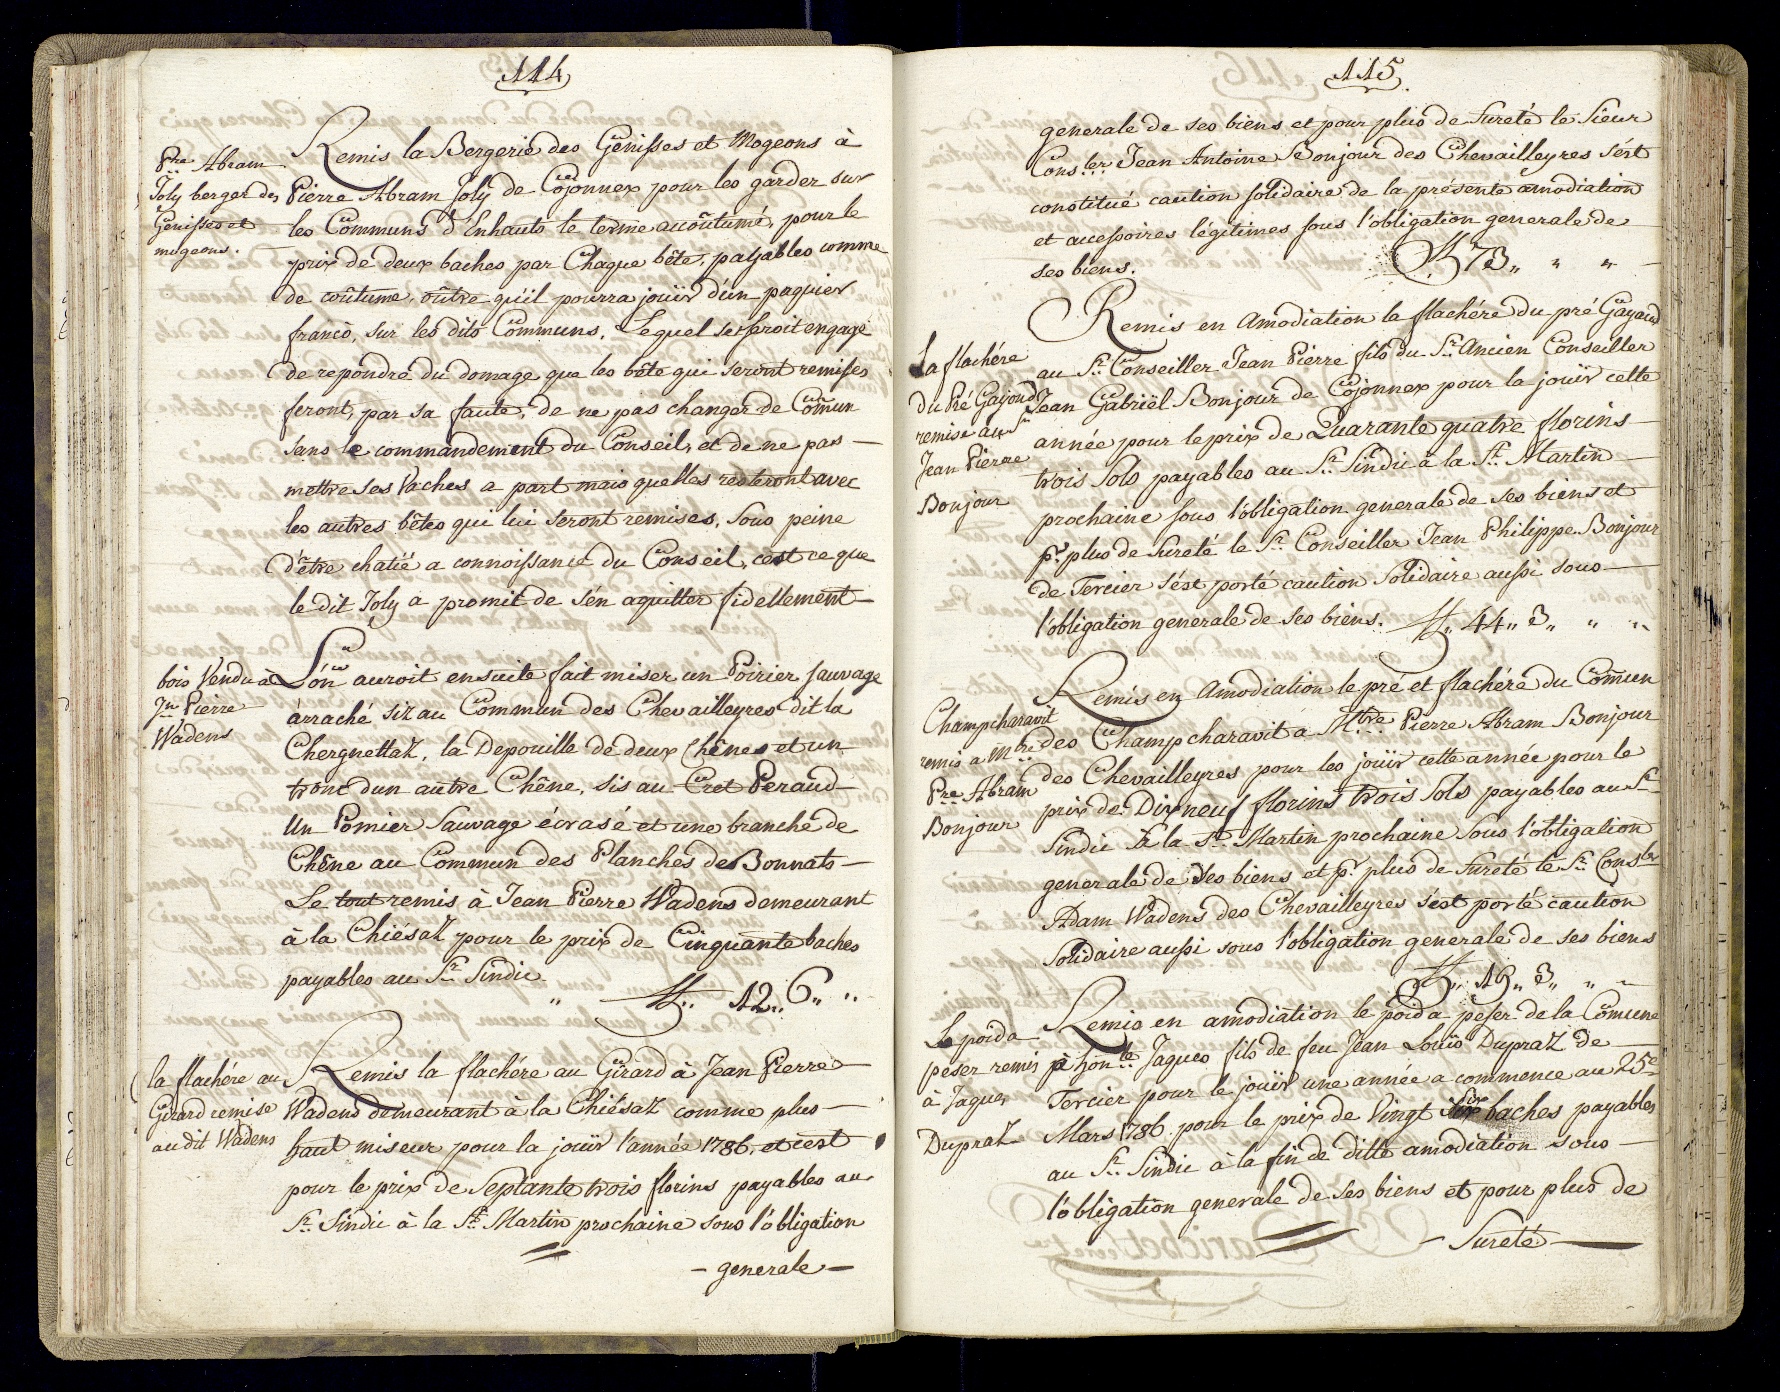 114
Remis la Bergerie des Genisses et Mogeons à
Pierre Abram Joly de Cojonnex pour les garder sur
les Communs d'Enhauts le terme accoûtumé, pour le
prix de deux baches par Chaque bête, payables comme
de coûtume, oûtre qu'il pourra joüir d'un paquier
francô, sur les dits Communs. Lequel engagé
de repondre du domage que les bête qui seront remises
feront, par sa faute, de ne pas changer de Cômun
sans le commandement du Conseil, et de ne pas
mettre ses Vaches a part mais quelles resteront avec
les autres bêtes qui lui seront remises, sous peine
d'être chatié a connoissance du Conseil, c'est ce que
le dit Joly a promit de s'én aquitter fidellement
Pre Abram
Joly berger des
Genisses et
mogeons.
L'ón auroit ensuite fait miser un Poirier sauvage
àrraché siz au Commun des Chevailleyres dit la
Chergnettaz, la Depouille de deux Chênes et un
tronc dun autre Chêne, sis au Cret Peraud
Un Pomier Sauvage écrasé et une branche de
Chêne au Commun des Planches des Bonnats
Le tout remis à Jean Pierre Wadens demeurant
à la Chiésaz pour le prix de Cinquante baches
payables au Sr. Sindic
" ff. 12.. 6.. ..
bois Vendu à
Jn Pierre
Wadens
Remis la flachére au Girard à Jean Pierre
Wadens demeurant à la Chiésaz comme plus
haut miseur pour la joüir l'année 1786, et c'est
pour le prix de Septante trois florins payables au
Sr. Sindic à la St. Martin prochaine sous l'obligation
- generale -
la flachére au
Girard remise
au dit Wadens
115
generale de ses biens et pour plus de Sureté le Sieur
Cons.ler Jean Antoine Bonjour des Chevailleyres s'ést
constitué caution solidaire de la présente amodiation
et accessoires légitimes sous l'obligation generale de
ses biens. ff 73.. " "
Remis en Amodiation la flachére du pré Gayoud
au Sr. Conseiller Jean Pierre fils du Sr. Ancien Conseiller
Jean Gabriël Bonjour de Cojonnex pour la joüir cette
année pour le prix de Quarante quatre florins
trois Sols payables au Sr. Sindic à la St. Martin
prochaine sous l'obligation generale de ses biens et
pr. plus de Sureté le Sr. Conseiller Jean Philippe Bonjour
de Tercier s'ést porté caution Solidaire aussi sous
l'obligation generale de ses biens. ff. 44.. 3.. " "
La flachére
du Pré Gayoud
remise au Sr
Jean Pierre
Bonjour
Remis en Amodiation le pré et flachére du Cômun
des Champcharavit a M.tre Pierre Abram Bonjour
des Chevailleyres pour les joüir cette année pour le
prix de Dix neuf florins trois Sols payables au Sr.
Sindic à la St. Martin prochaine sous l'obligation
generale de ses biens et pr. plus de Sureté le Sr. Consler
Adam Wadens des Chevailleyres s'ést porté caution
Solidaire aussi sous l'obligation generale de ses biens
ff. 19.. 3.. " "
Champcharavit
remis a Mtre
Pre Abram
Bonjour
Remis en amodiation le poid a peser de la Cômune
à hon.te Jaques fils de feu Jean Loüis Dupraz de
Tercier pour le joüir une année a commence au 25e
Mars 1786 pour le prix de Vingt baches payables
au Sr. Sindic à la fin de ditte amodiation sous
l'obligation generale de ses biens et pour plus de
- Sureté -
Le poid a
peser remis
à Jaques
Dupraz